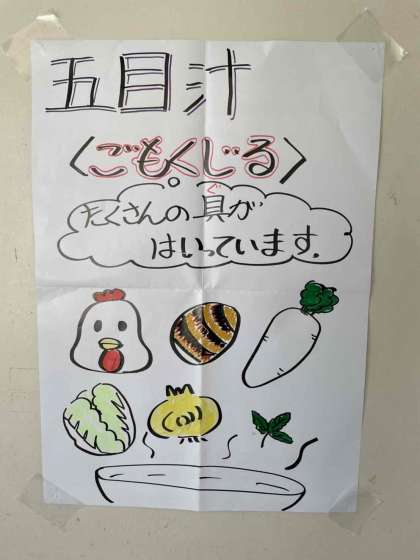 五目汁
〈ごもくじる〉
ぐ
たくさんの具が
はいっています.